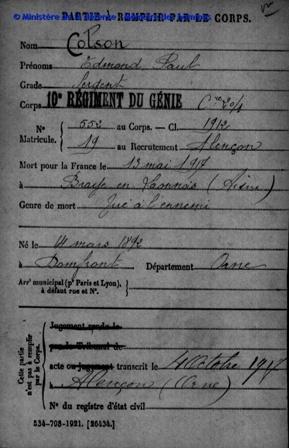 PARTIE À REMPLIR PAR LE CORPS.
© Ministère
Nom Colson
Prénoms Edmond Paul
Grade Sergent
Corps 10e RÉGIMENT DU GÉNIE Cie 20/4
N° Matricule. { 552 au Corps. — Cl. 1912
19 au Recrutement Alençon
Mort pour la France le 13 mai 1917
à Braye en Laonnois (Aisne)
Genre de mort Tué à l'ennemi
Né le 4 mars 1892
à Domfront Département Orne
Arrt municipal (pr Paris et Lyon),
à défaut rue et N°.
Cette partie n'est pas à remplir par le Corps.
Jugement rendu le
par le Tribunal de
acte ou jugement transcrit le 4 Octobre 1917
à Alençon (Orne)
N° du registre d'état civil
534-708-1921. [26434.]